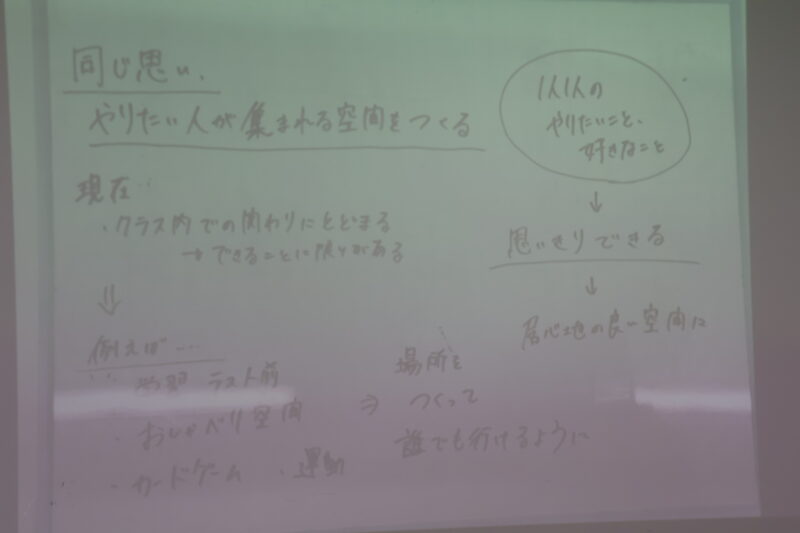 同じ思い、
やりたい人が集まれる空間をつくる
現在…
・クラス内での関わりにとどまる
→できることに限りがある
⇓
例えば…
・学習 テスト前
・おしゃべり空間
・カードゲーム ・運動
⇒
場所を
つくって
誰でも行けるように
1人1人の
やりたいこと、
好きなこと
↓
思いきりできる
↓
居心地の良い空間に